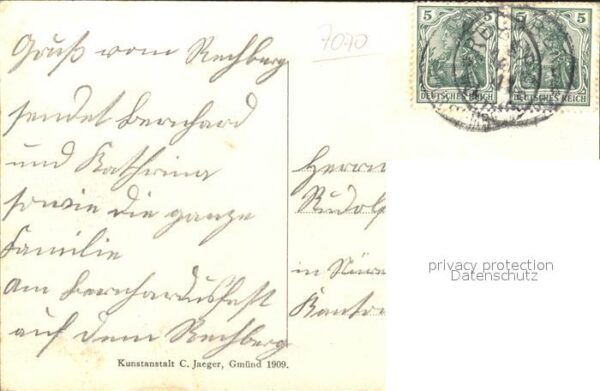 Gruß vom Rechberg
sendet Bernhard
und Kathrina
sowie die ganze
Familie
am Bernhardusfest
auf dem Rechberg
7070
5 5
DEUTSCHES REICH DEUTSCHES REICH
Herrn
Rudolf
in
Kanton
privacy protection
Datenschutz
Kunstanstalt C. Jaeger, Gmünd 1909.